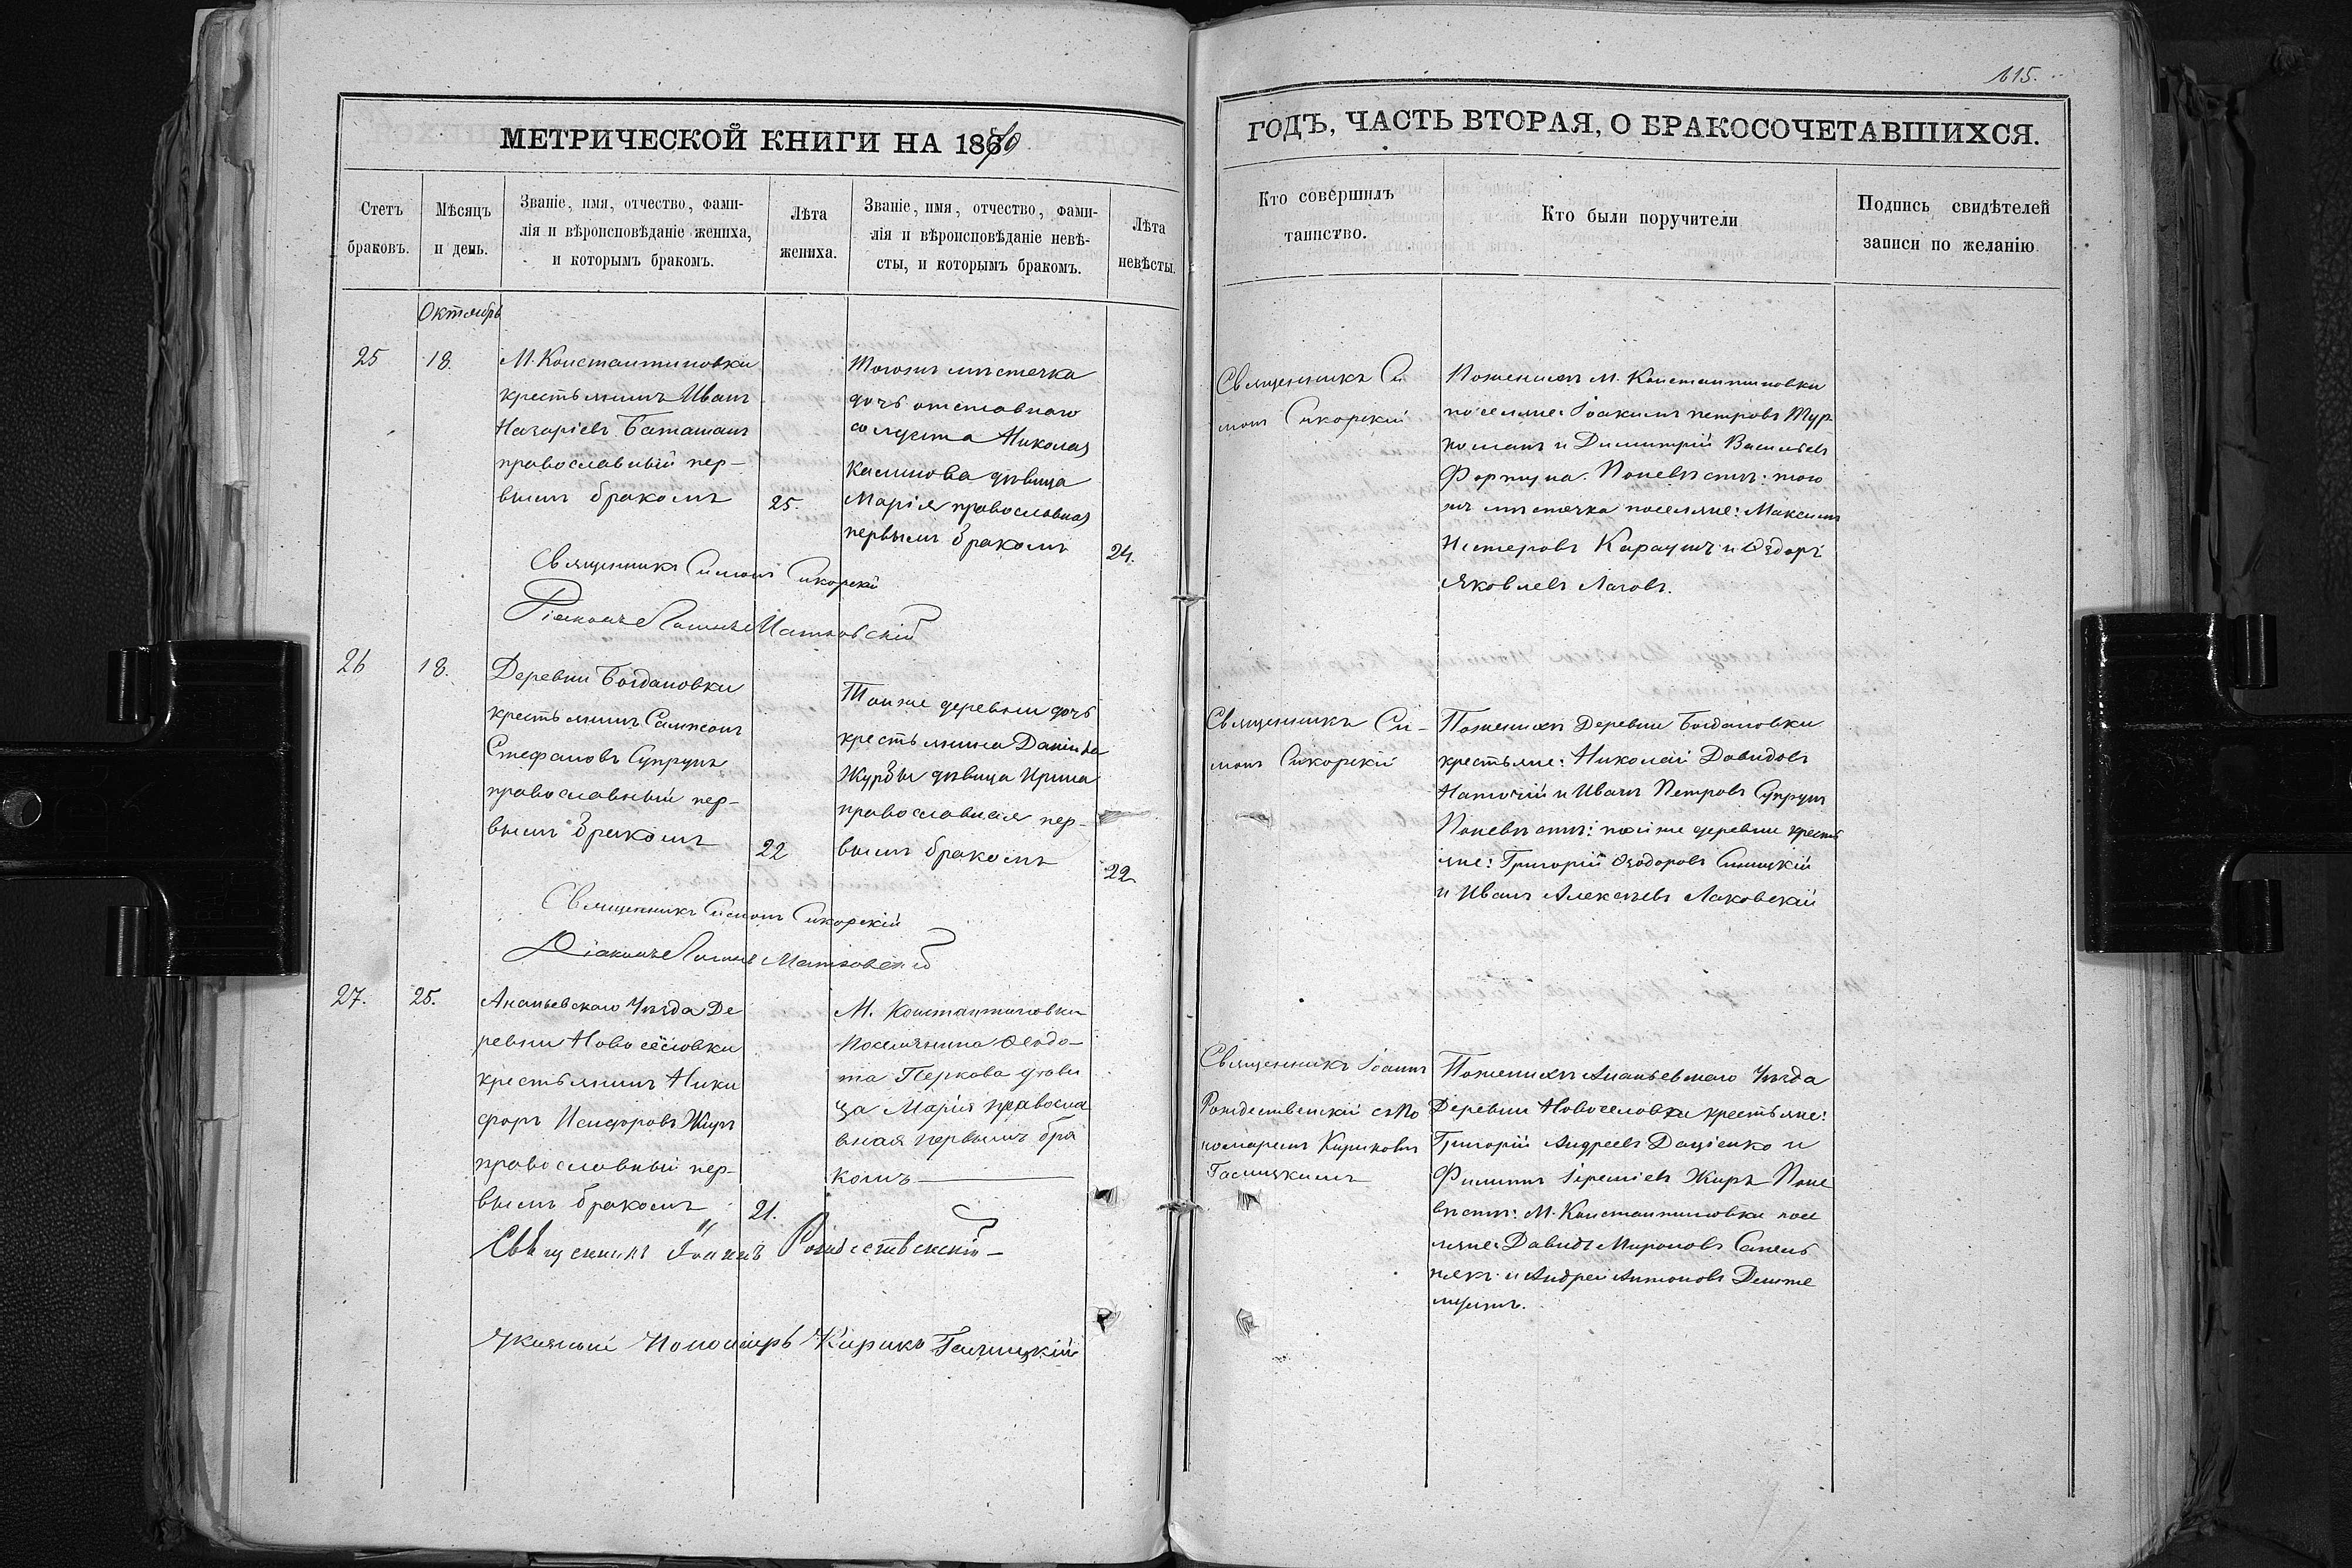 115.
МЕТРИЧЕСКОЙ КНИГИ НА 1870
ГОДЪ, ЧАСТЬ ВТОРАЯ, О БРАКОСОЧЕТАВШИХСЯ.
Счетъ
браковъ.
Мѣсяцъ
и день.
Званіе, имя, отчество, фами-
лія и вѣроисповѣданіе жениха,
и которымъ бракомъ.
Лѣта
жениха.
Званіе, имя, отчество, фами-
лія и вѣроисповѣданіе невѣ-
сты, и которымъ бракомъ.
Лѣта
невѣсты.
Кто совершилъ
таинство.
Кто были поручители
Подпись свидѣтелей
записи по желанію.
Октябрь
25
18.
М. Константиновки
крестьянинъ Иванъ
Назаріевъ Баташанъ
православный пер-
вымъ бракомъ
25.
Тогожъ мѣстечка
дочь отставнаго
солдата Николая
Калинова дѣвица
Марія православная
первымъ бракомъ
24.
Священникъ Си
монъ Сикорскій
Поженихѣ М. Константиновки
поселяне: Іоакимъ Петровъ Тур
команъ и Димитрій Васильевъ
Фортуна. Поневѣстѣ: того
жъ мѣстечка поселяне: Максимъ
Нестеровъ и Ѳедоръ
Яковлевъ
Священникъ Симонъ Сикорскій
Діаконъ Матковскій
26
18.
Деревни Богдановки
крестьянинъ Сампсонъ
Стефановъ Супрунъ
православный пер-
вымъ бракомъ
22
Тойже деревни дочь
крестьянина Даніила
Журбы дѣвица Ирина
православная пер-
вымъ бракомъ
22
Священникъ Си-
монъ Сикорскій
Поженихѣ Деревни Богдановки
крестьяне: Николай Давидовъ
и Иванъ Петровъ Супрунъ
Поневѣстѣ: тойже деревни кресть
яне: Григорій Ѳеодоровъ Синицкій
и Иванъ Алексѣевъ Лаковскій
Священникъ Симонъ Сикорскій
Діаконъ Матковскій
27.
25.
Ананьевскаго Уѣзда Де
ревни Новосёловки
крестьянинъ Ники
форъ Исидоровъ Жиръ
православный пер-
вымъ бракомъ
21.
М. Константиновки
поселянина Ѳеодо-
та Перкова дѣви
ца Марія правосла
вная первымъ бра
комъ
Священникъ Іоаннъ
Рождественскій съ По
номаремъ Кирикомъ
Галицкимъ
Поженихѣ Ананьевскаго Уѣзда
Деревни Новоселовки крестьяне:
Григорій Андреевъ Даціенко и
Филиппъ Іереміевъ Жиръ Поне
вѣстѣ: М. Константиновки посе
ляне: Давидъ Мироновъ
и Андрей Антоновъ
Священникъ Іоаннъ Рождественскій
Пономарь Кирикъ Галицкій